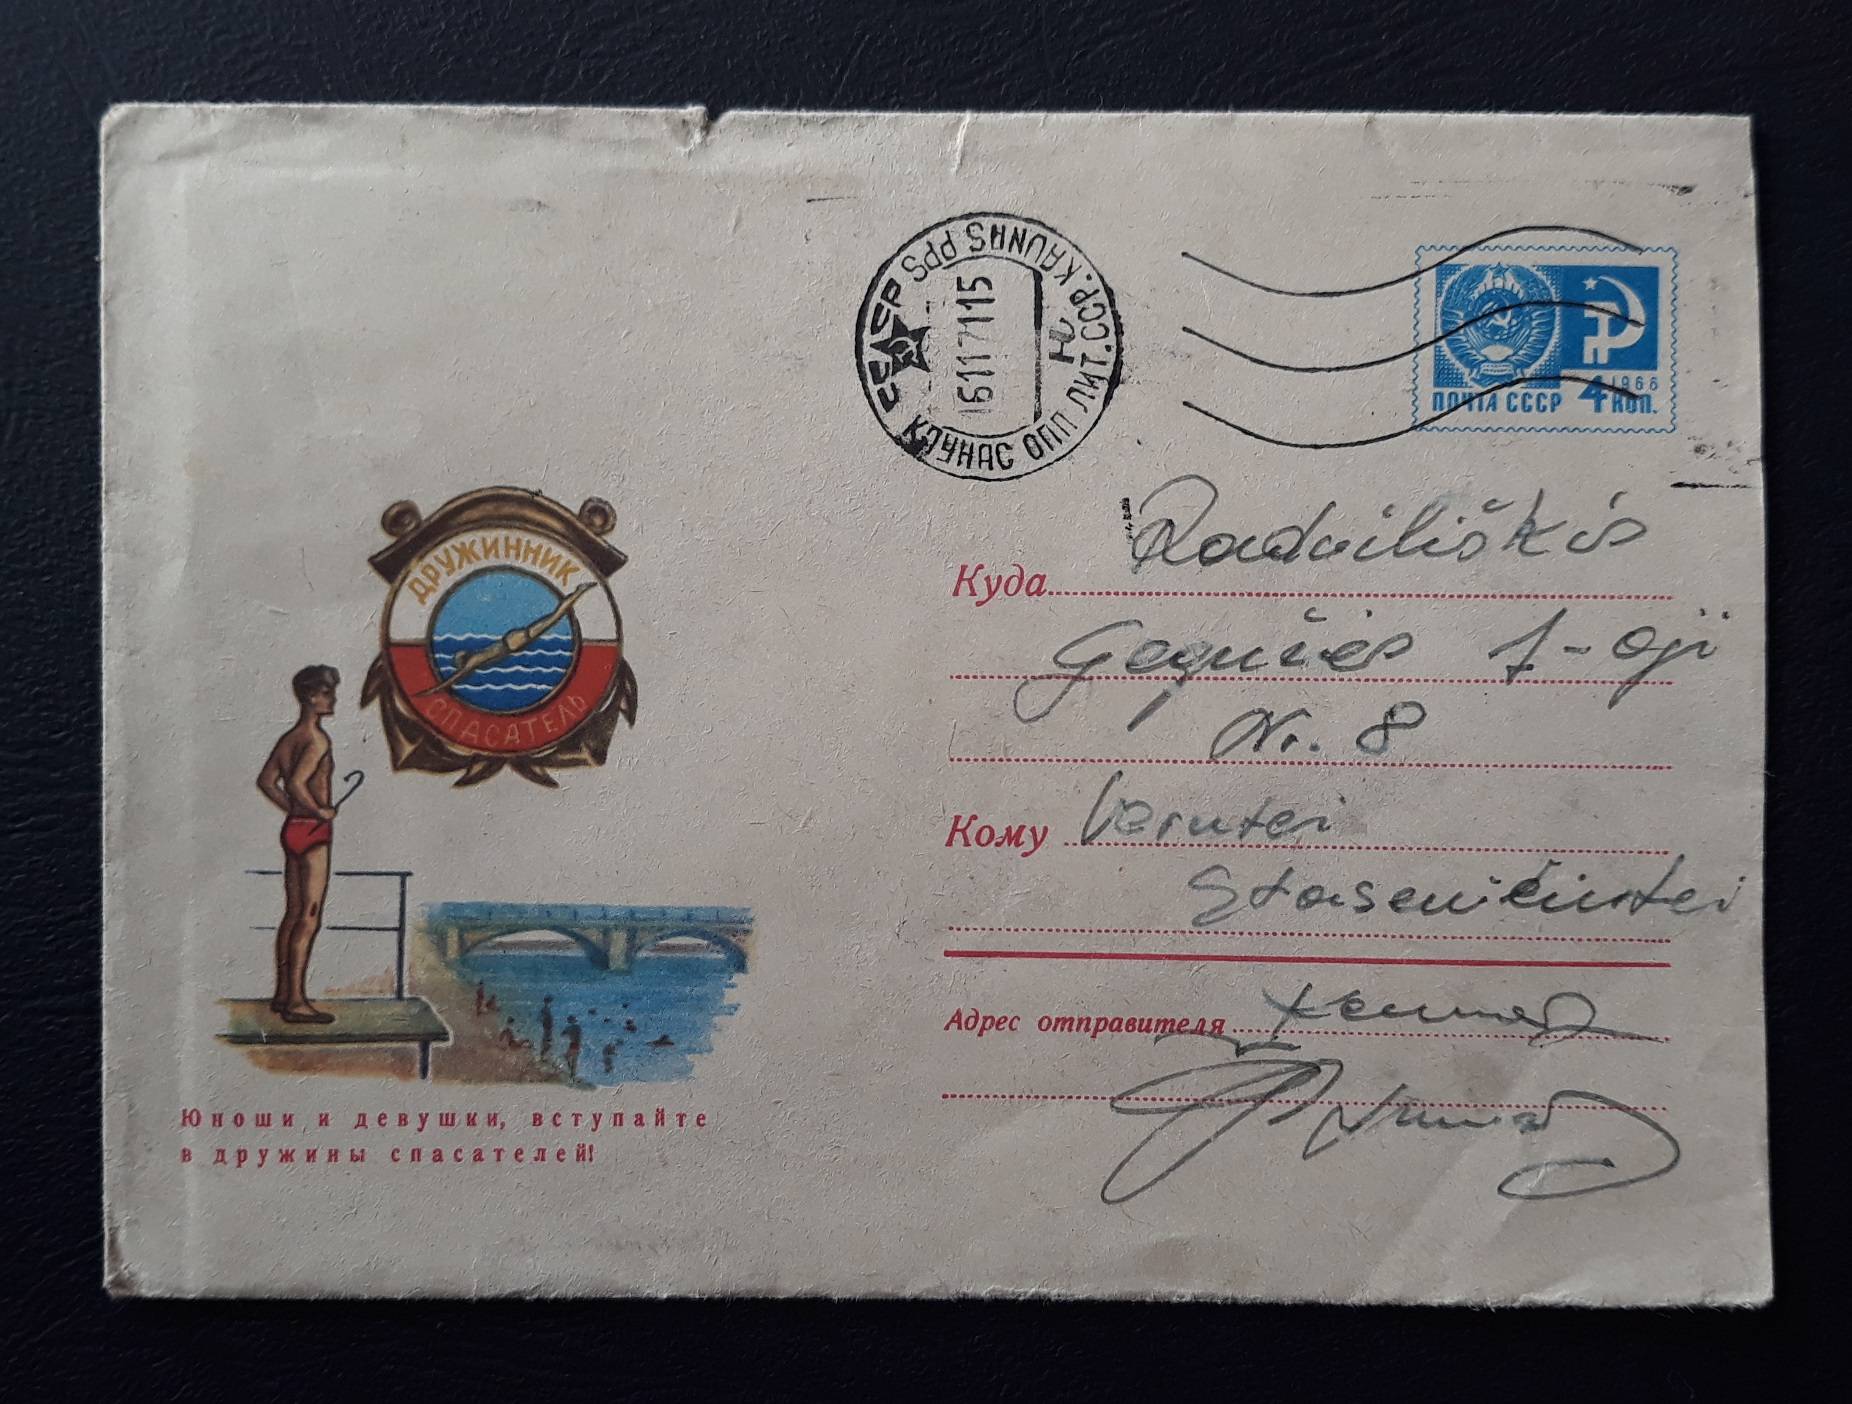 СССР КАУНАС ОПП ЛИТ.ССР. KAUNAS PPS
1611171 15
ПОЧТА СССР 4 1966 КОП.
ДРУЖИННИК
СПАСАТЕЛЬ
Куда Radviliškis
Gegužės 1-oji
Nr. 8
Кому Verutei
Stasevičiutei
Адрес отправителя Kaunas
Юноши и девушки, вступайте
в дружины спасателей!